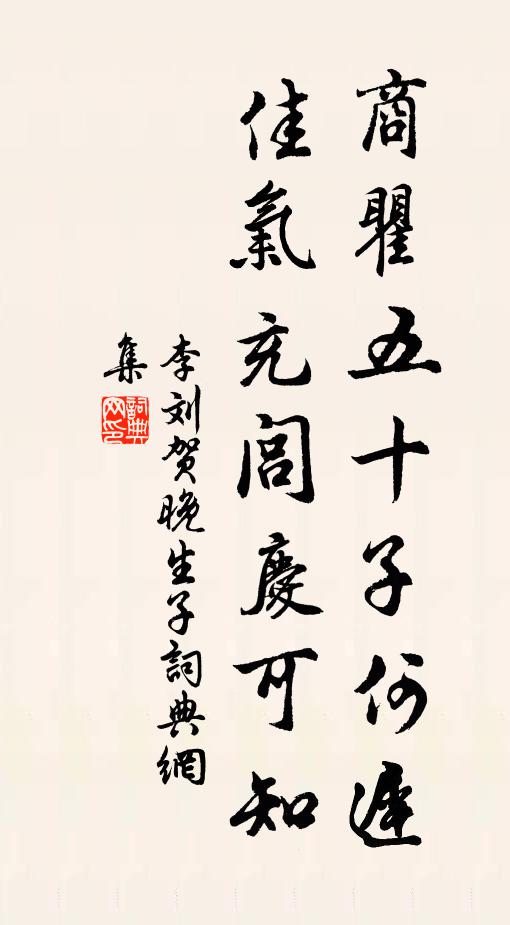 商瞿五十子何遲
佳氣充閭慶可知
李刘贺晚生子詞典網
集
詞典
网印